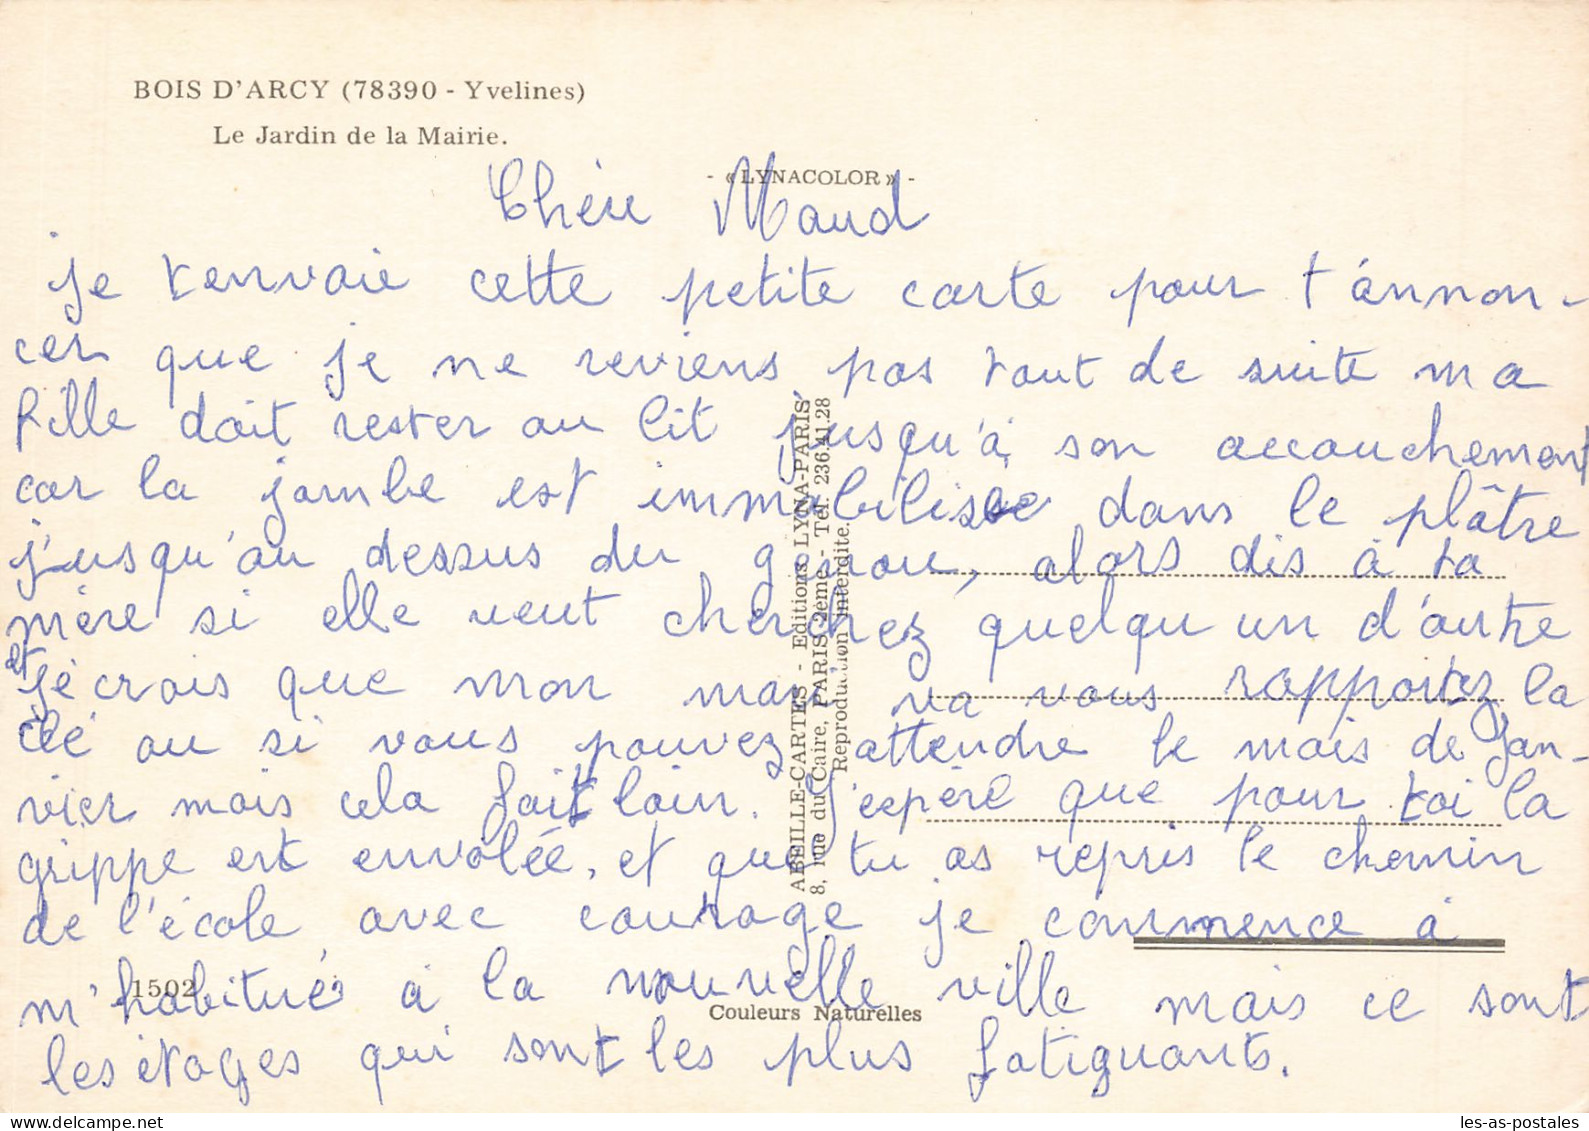 BOIS D'ARCY (78390 - Yvelines)
Le Jardin de la Mairie.
- « LYNACOLOR » -
Chère Maud
je t'envoie cette petite carte pour t'annon-
cer que je ne reviens pas tout de suite ma
fille doit rester au lit jusqu'à son accouchement
car la jambe est immobilisée dans le plâtre
j'usqu'au dessus du genou, alors dis à ta
mère si elle veut cherchez quelqu un d'autre
et je crois que mon mari va vous rapportez la
clé ou si vous pouvez attendre le mois de Jan-
vier mais cela fait loin. J'espère que pour toi la
grippe est envolée, et que tu as repris le chemin
de l'école avec courage je commence à
m'habitué à la nouvelle ville mais ce sont
les étages qui sont les plus fatiguants.
ABEILLE-CARTES - Editions LYNA-PARIS
8, rue du Caire, PARIS 2ème - Tél. 236.41.28
Reproduction interdite.
1502
Couleurs Naturelles
les-as-postales.com